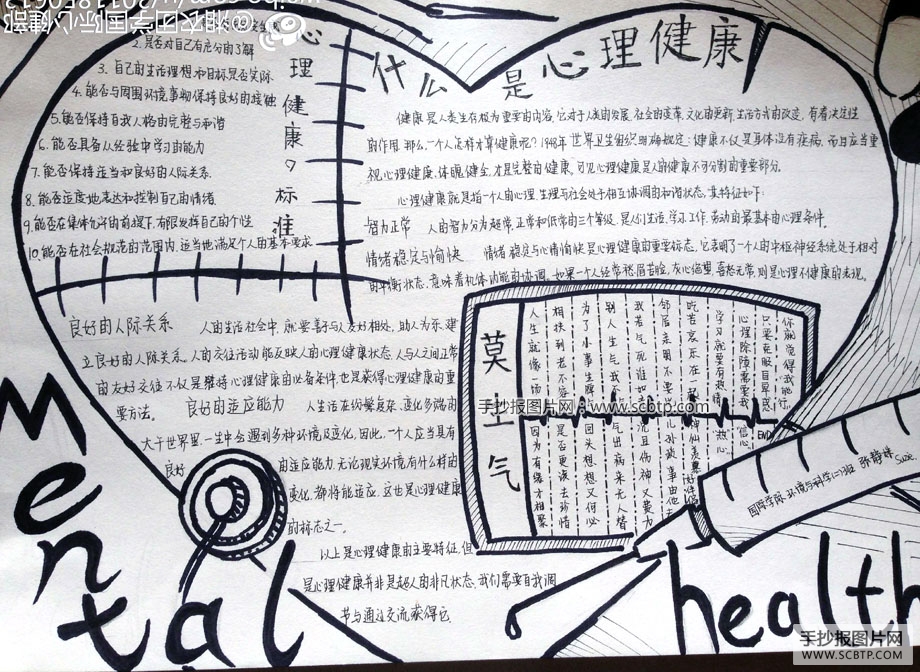 心理健康の标准
2.是否对自己有充分的了解
3.自己的生活理想和目标是否实际
4.能否与周围环境事物保持良好的接触
5.能否保持自我人格的完整与和谐
6.能否具备从经验中学习的能力
7.能否保持适当和良好的人际关系
8.能否适度地表达和控制自己的情绪
9.能否在集体允许的前提下,有限发挥自己的个性
10.能否在社会规范的范围内,适当地满足个人的基本要求
什么是心理健康
健康是人类生存极为重要的内容,它对于人类的发展,社会的变革,文化的更新,生活方式的改造,有着决定性
的作用.那么,一个人怎样才算健康呢?1948年世界卫生组织明确规定:健康不仅是身体没有疾病,而且应当重
视心理健康.体魄健全,才是完整的健康,可见心理健康是人的健康不可分割的重要部分.
心理健康就是指一个人的心理生理与社会处于相互协调的和谐状态,其特征如下:
智力正常 人的智力分为超常,正常和低常的三个等级,是人们生活,学习,工作,劳动的最基本的心理条件.
情绪稳定与愉快 情绪稳定与心情愉快是心理健康的重要标志,它表明了一个人的中枢神经系统处于相对
的平衡状态,意味着机体功能的协调.如果一个人经常愁眉苦脸,灰心绝望,喜怒无常,则是心理不健康的表现.
良好的人际关系 人的生活社会中,就要善于与人友好相处,助人为乐,建
立良好的人际关系.人的交往活动能反映人的心理健康状态,人与人之间正常
的友好交往不仅是维持心理健康的必备条件,也是获得心理健康的重
要方法. 良好的适应能力 人生活在纷繁复杂、变化多端的
大千世界里,一生中会遇到多种环境及变化,因此,一个人应当具有
良好的适应能力,无论现实环境有什么样的
变化,都将能适应,这也是心理健康
的标志之一.
以上是心理健康的主要特征,但
是心理健康并非是超人的非凡状态,我们需要自我调
节与通过交流获得它.
莫生气
人生就像一场 因为有缘才相聚
相扶到老不容 是否更该去珍惜
为了小事 回头想想又何必
别人生气我不 气出病来无人替
我若气死谁如 况且伤神又费力
END
国际学院 环境与科学(二)班 Suze.
Mental
health
手抄报图片网:www.scbtp.com
手抄报图片网
WWW.SCBTP.COM